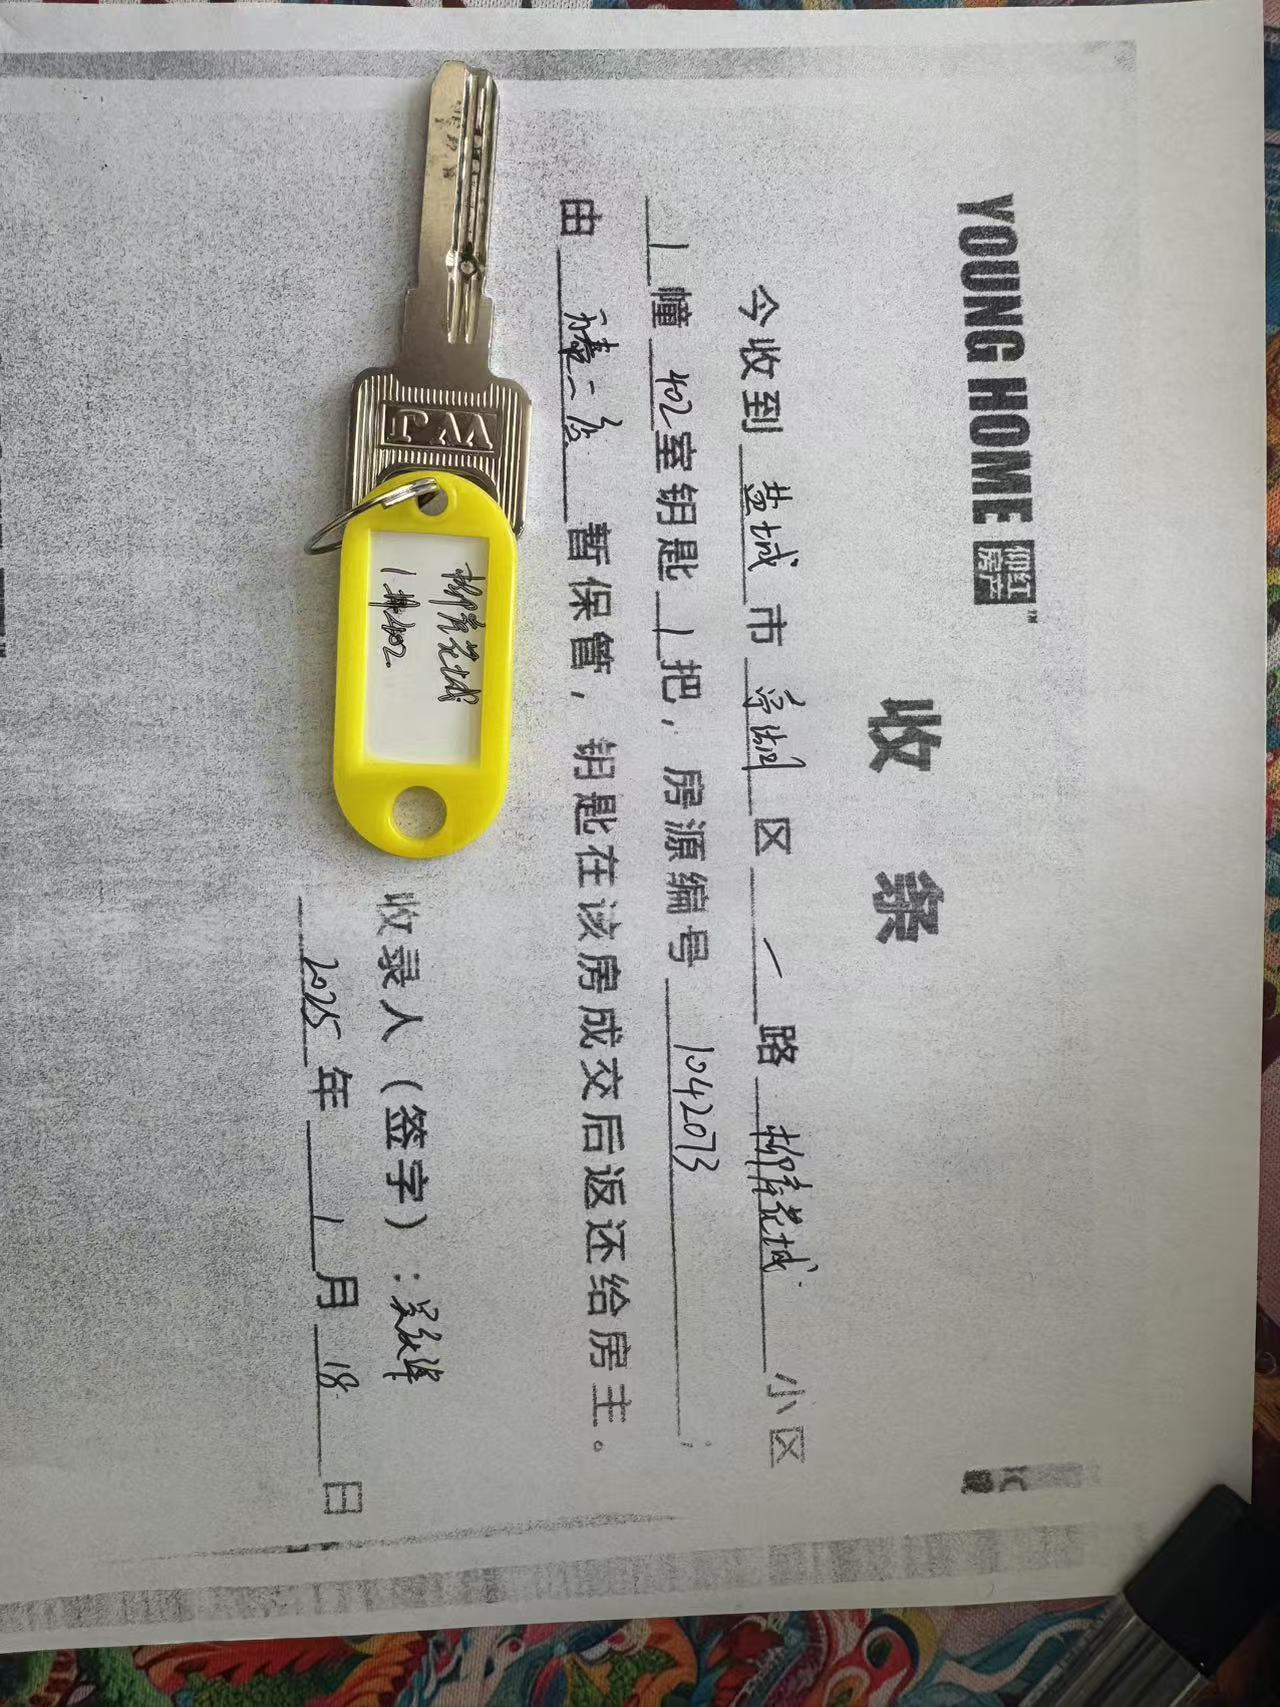 YOUNG HOME 仰红房产™
收 条
今收到 盐城 市 亭湖 区 一 路 柳青花城 小区
1 幢 402 室钥匙 1 把，房源编号 1042073 ；
由 二店 暂保管，钥匙在该房成交后返还给房主。
收录人（签字）：吴
2025 年 1 月 18 日
柳青花城
1幢402